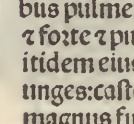 bus pulme
⁊ forte ⁊ pu
itidem eius
unges: cast
magnus fi